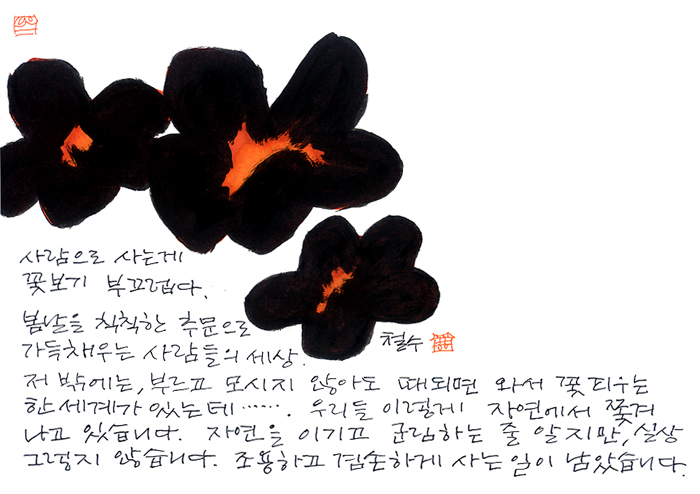 사람으로 사는게
꽃보기 부끄럽다.
봄날을 칙칙한 추문으로
가득채우는 사람들의 세상.
철수
저 밖에는, 부르고 모시지 않아도 때되면 와서 꽃피우는
한세계가 있는데……. 우리들 이렇게 자연에서 쫓겨
나고 있습니다. 자연을 이기고 군림하는 줄 알지만, 실상
그렇지 않습니다. 조용하고 겸손하게 사는 일이 남았습니다.